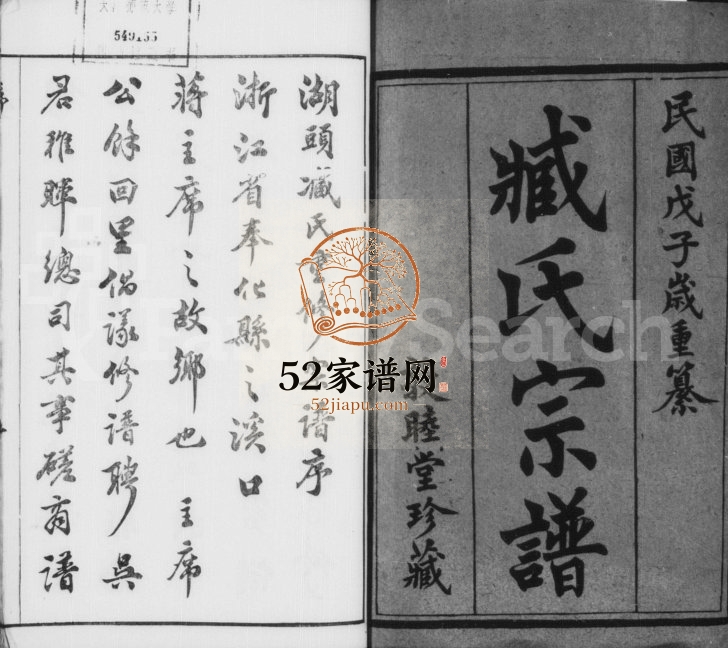 民國戊子歲重纂
臧氏宗譜
睦堂珍藏
湖頭臧氏重修宗譜序
浙江省奉化縣之溪口
蔣主席之故鄉也 主席
公餘回里倡議修譜聘吳
君稚暉總司其事磋商譜
549155
52家谱网
52jiapu.com
Search